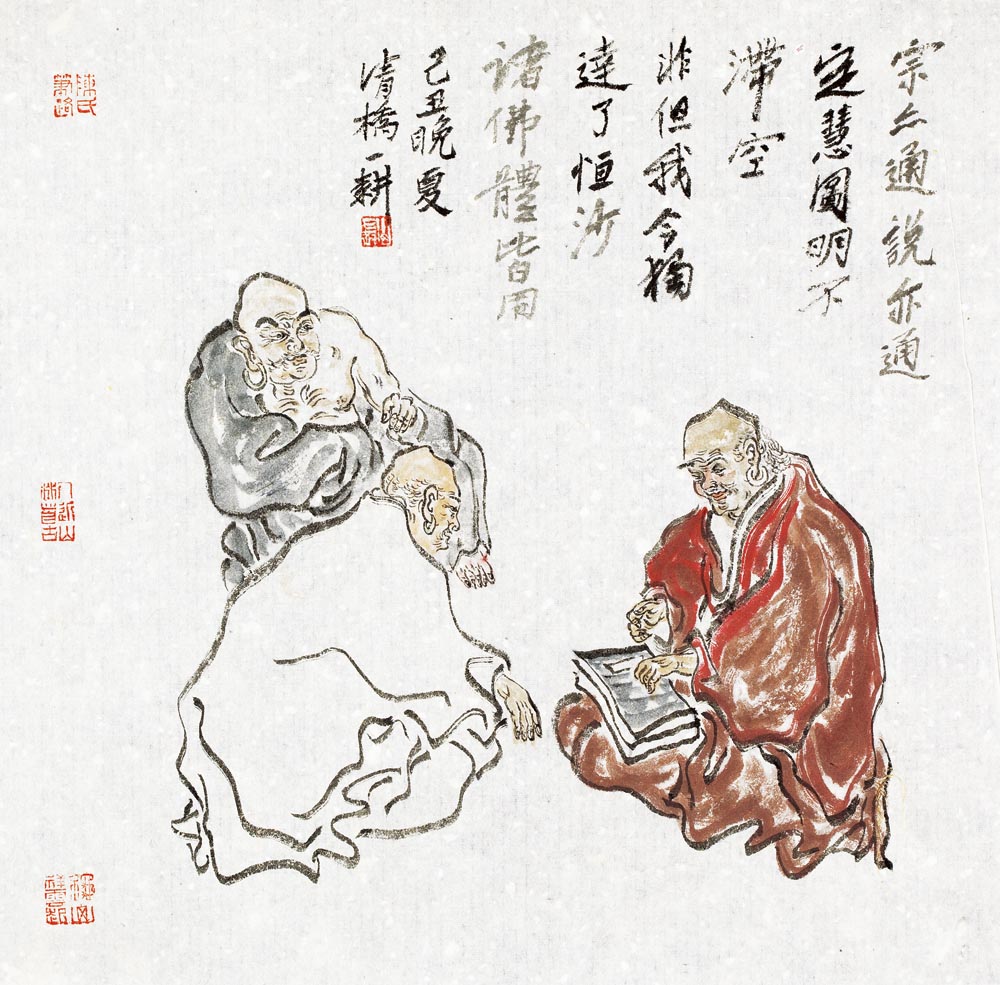 宗亦通說亦通
定慧圓明不
滯空
非但我今獨
達了恒沙
諸佛體皆同
己丑晚夏
清橋一耕